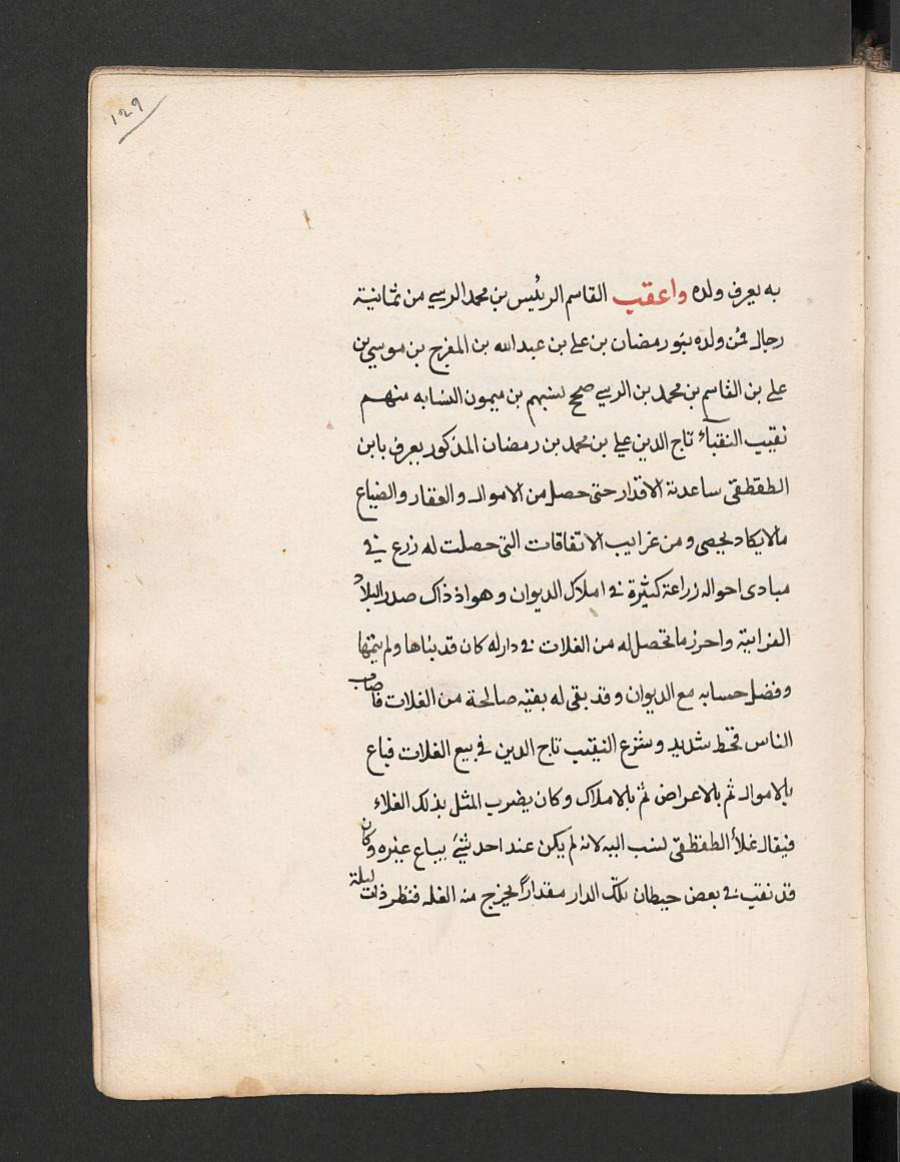 ١٢٩
به يعرف ولده واعقب القاسم الرئيس بن محمد الرسي من ثمانية
رجال فمن ولده بنو رمضان بن علي بن عبدالله بن المفرج بن موسي بن
علي بن القاسم بن محمد بن الرسي صحح نسبهم بن ميمون النسابه منهم
نقيب النقبآء تاج الدين علي بن محمد بن رمضان المذكور يعرف بابن
الطقطقي ساعدته الاقدار حتى حصل من الاموال والعقار والضياع
مالايكاد يحصى ومن غرايب الاتفاقات التى حصلت له زرع في
مبادى احواله زراعة كثيرة في املاك الديوان وهو اذ ذاك صدر البلاد
الفراتية واحرز ما تحصل له من الغلات في دار له كان قد بناها ولم يتمها
وفضل حسابه مع الديوان وقد بقى له بقية صالحة من الغلات فاصاب
الناس قحط شديد وشرع النقيب تاج الدين في بيع الغلات فباع
بالاموال ثم بالاعراض ثم بالاملاك وكان يضرب المثل بذلك الغلاء
فيقال غلأ الطقطقي نسب اليه لانه لم يكن عند احد شئ يباع غيره وكان
قد نقب في بعض حيطان تلك الدار مقداراً لخرج منه الغله فنظر ذات ليلة